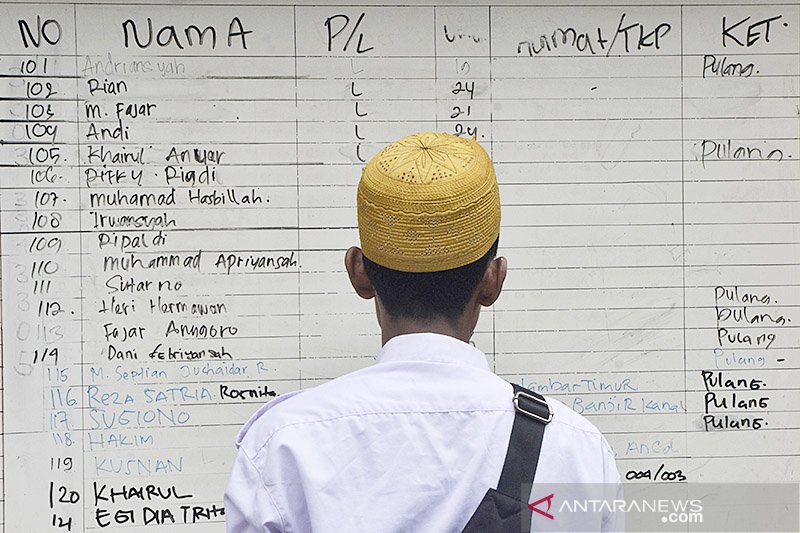 NO NAMA P/L UMU ALAMAT/TKP KET.
101 Andriansyah L Pulang.
102 Rian L 24
103 M. Fajar L 21
104 Andi L 24.
105. Khairul Anwar L Pulang.
106. RIFKY Riadi
107. Muhamad Hasbillah.
108 Irwansyah
109 Ripaldi
110 Muhammad Apriyansah.
111 Sutarno
112. Heri Hermawan Pulang.
113 Fajar Anggoro Pulang.
114 Dani Febriyansah Pulang
115 M. Septian Juchaidar R. Pulang -
116 REZA SATRIA Jambar TIMUR Pulang.
117. SUGIONO BanjIR Kanal Pulang
118. HAKIM Pulang.
119 KUSNAN Ancol
120 KHAIRUL 004/003
121 EGIDIA
ANTARANEWS
.com